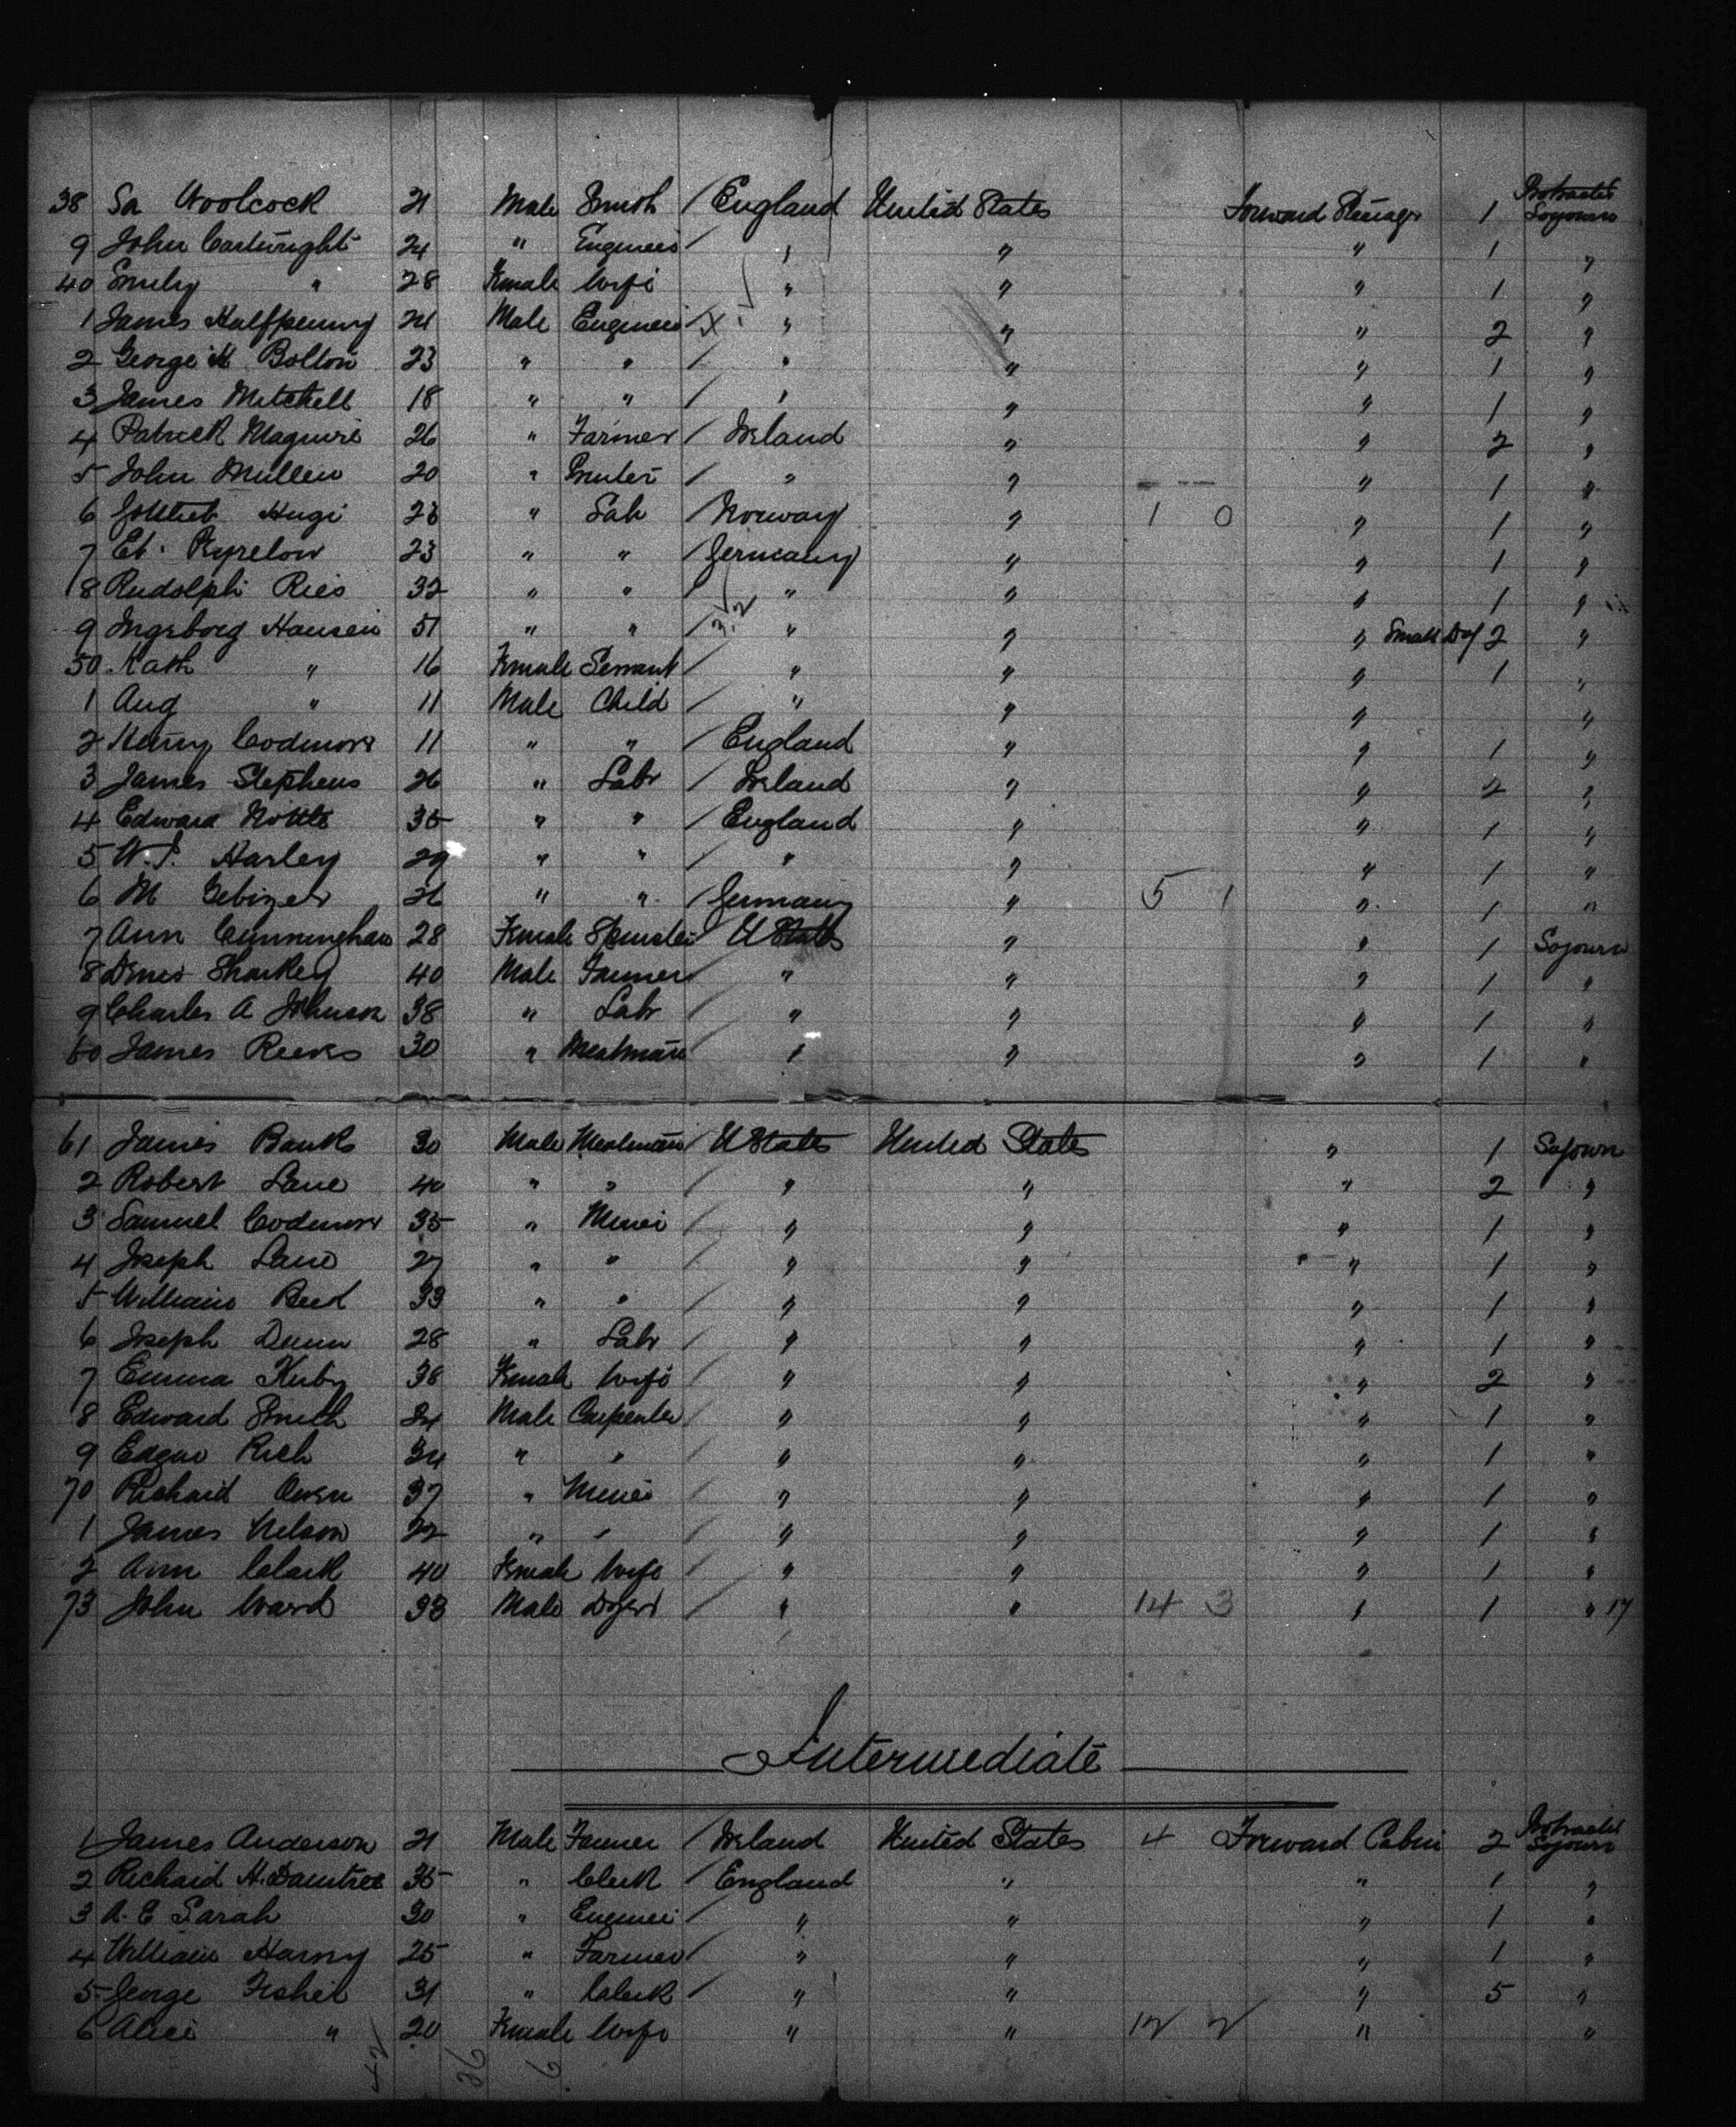 38 Sa Woolcock 21 Male Smith / England United States Forward Steerage 1 Protracted Sojourn
9 John Cartwright 24 " Engineer / " " " 1 "
40 Emily " 28 Female Wife " " " 1 "
1 James Halfpenny 24 Male Engineer X " " " 2 "
2 George H Bolton 23 " " / " " " 1 "
3 James Mitchell 18 " " / " " " 1 "
4 Patrick Maguire 26 " Farmer / Ireland " " 2 "
5 John Mullen 20 " / " " " 1 "
6 Gottlieb Hugi 23 " Lab / Norway " 1 0 " 1 "
7 23 " " / Germany " " 1 "
8 Rudolph Ries 32 " " / " " " 1 "
9 Ingeborg Hansen 51 " " / " " " Small 2 "
50 Kath " 16 Female Servant / " " " 1 "
1 Aug " 11 Male Child / " " " "
2 Henry Codmore 11 " " / England " " 1 "
3 James Stephens 26 " Labr / Ireland " " 2 "
4 Edward 35 " " / England " " 1 "
5 Harley 29 " " / " " " 1 "
6 M " " / Germany " 5 1 " 1 "
7 Ann Cunningham 28 Female Spinster / U States " " 1 Sojourn
8 Sharkey 40 Male Farmer / " " " 1 "
9 Charles A Johnson 38 " Labr / " " " 1 "
60 James Reeves 30 " " " " 1 "
61 James Banks 30 Male / U States United States " 1 Sojourn
2 Robert Lane 40 " " / " " " 2 "
3 Samuel Codmore 35 " Miner / " " " 1 "
4 Joseph Lane 27 " " / " " " 1 "
5 William 33 " " / " " " 1 "
6 Joseph Dunn 28 " Labr / " " " 1 "
7 Emma Kirby 38 Female Wife / " " " 2 "
8 Edward Smith 24 Male Carpenter / " " " 1 "
9 Edgar Rich 34 " " / " " " 1 "
70 Richard Owen 37 " Miner / " " " 1 "
1 James Nelson 22 " " / " " " 1 "
2 Ann Clark 40 Female Wife / " " " 1 "
73 John Ward 33 Male / " " 14 3 " 1 " 17
Intermediate
1 James Anderson 21 Male Farmer / Ireland United States 4 Forward Cabin 2 Protracted Sojourn
2 Richard H. Daintree 35 " Clerk / England " " 1 "
3 A. E Sarah 30 " Engineer / " " " 1 "
4 William 25 " Farmer / " " " 1 "
5 George Fisher 31 " Clerk / " " " 5 "
6 Alice " 20 Female Wife " " 12 2 " "
42 36 6